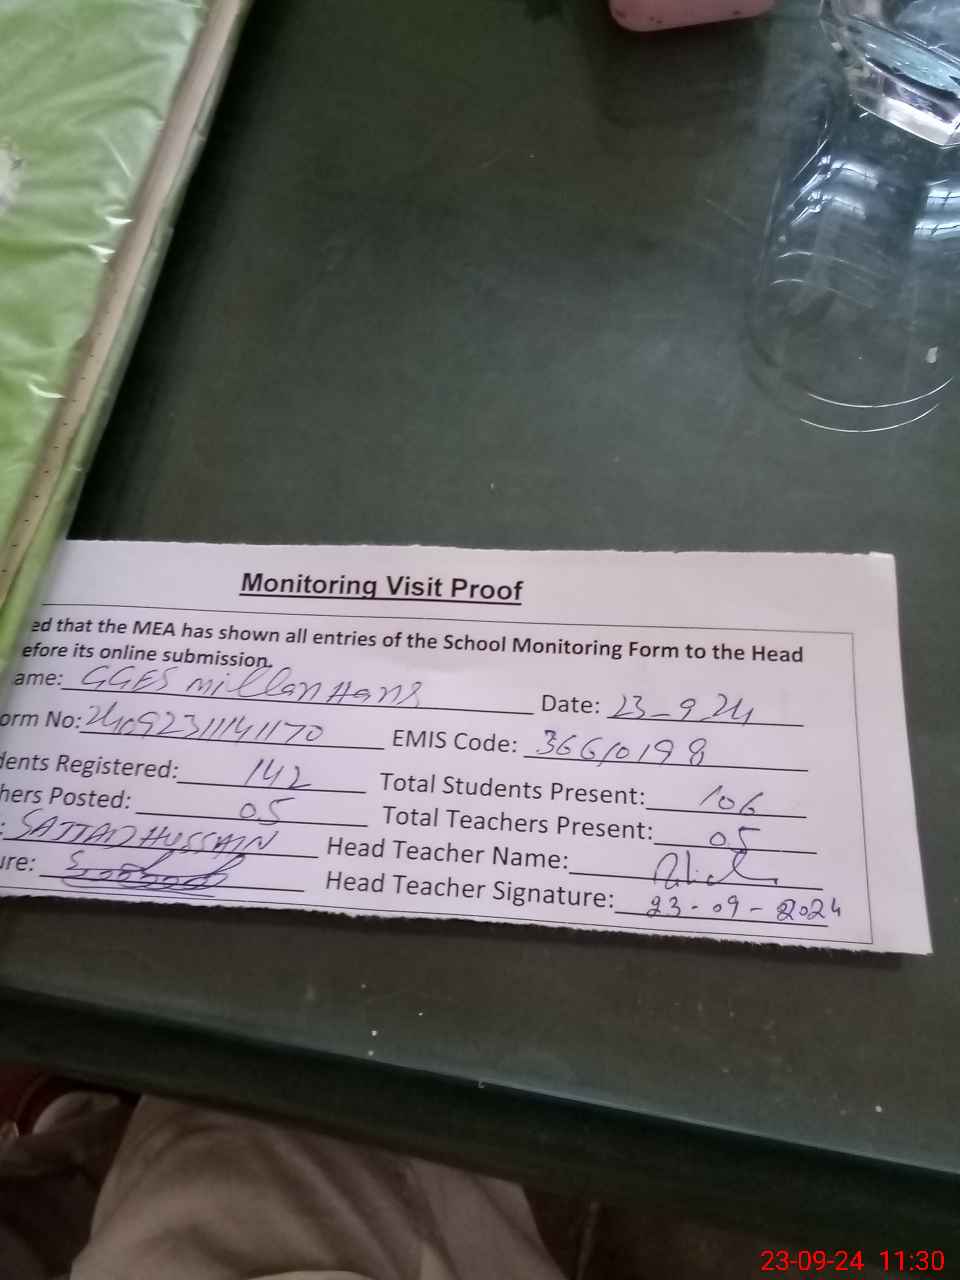 Monitoring Visit Proof
ed that the MEA has shown all entries of the School Monitoring Form to the Head
efore its online submission.
ame: GGES millan Hans Date: 23-9 24
orm No: 24092311141170 EMIS Code: 36610198
dents Registered: 142 Total Students Present: 106
hers Posted: 05 Total Teachers Present: 05
: SAJJAD HUSSAIN Head Teacher Name:
ure: Head Teacher Signature: 23-09-2024
23-09-24 11:30